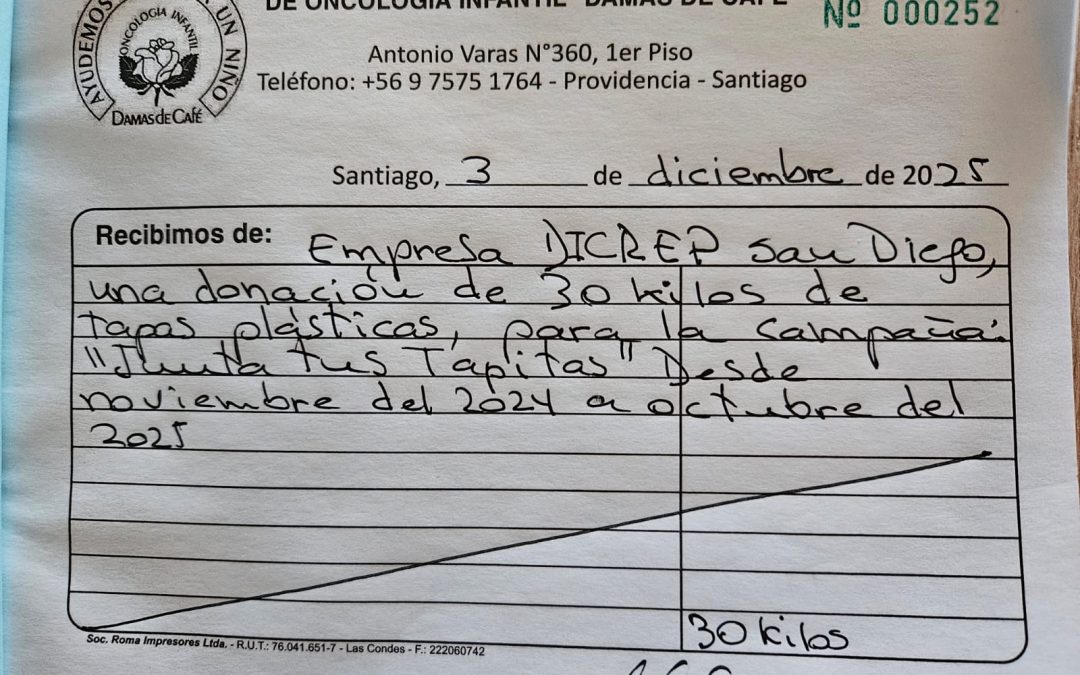 DE ONCOLOGÍA INFANTIL "DAMAS DE CAFÉ"
Nº 000252
AYUDEMOS UN NIÑO
ONCOLOGÍA INFANTIL
DAMAS DE CAFÉ
Antonio Varas N°360, 1er Piso
Teléfono: +56 9 7575 1764 - Providencia - Santiago
Santiago, 3 de diciembre de 2025
Recibimos de: Empresa DICREP San Diego,
una donación de 30 kilos de
tapas plásticas, para la campaña:
"Junta tus Tapitas" Desde
noviembre del 2024 a octubre del
2025
30 kilos
Soc. Roma Impresores Ltda. - R.U.T.: 76.041.651-7 - Las Condes - F.: 222060742